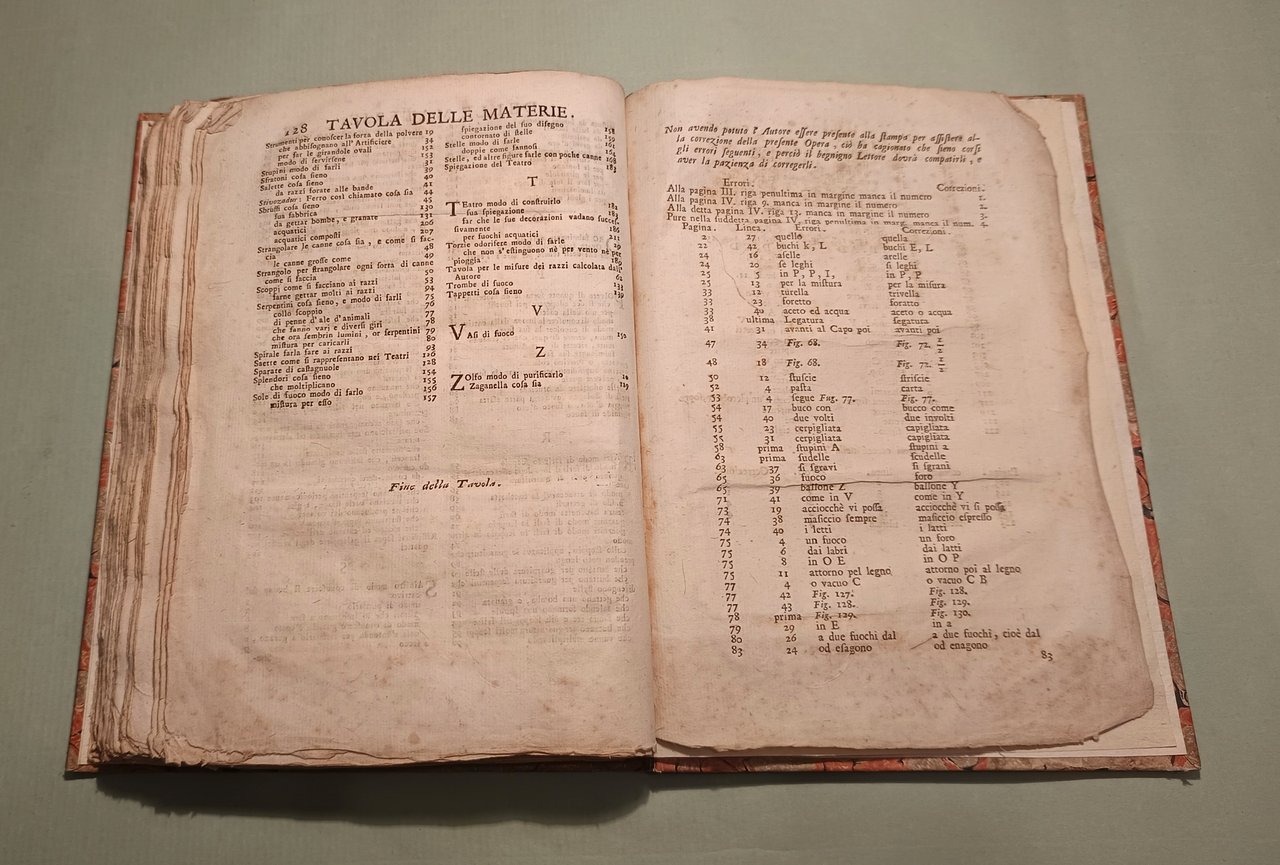 128 TAVOLA DELLE MATERIE.
Strumenti per conoscer la forza della polvere 19
che abbisognano all' Artificiere 34
per far le girandole ovali 152
modo di servirsene 153
Stupini modo di farli 31
Sfratoni cosa sieno 39
Salette cosa sieno 40
da razzi forate alle bande 41
Stivozador: Ferro così chiamato cosa sia 44
Sbruffi cosa sieno 45
sua fabbrica 130
da gettar bombe, e granate 131
acquatici 206
acquatici composti 207
Strangolare le canne cosa sia, e come si fac-
cia 48
le canne grosse come 49
Strangolo per strangolare ogni sorta di canne
come si faccia 50
Scoppi come si facciano ai razzi 53
farne gettar molti ai razzi 94
Serpentini cosa sieno, e modo di farli 75
collo scoppio 76
di penne d'ale d'animali 77
che fanno vari e diversi giri 78
che ora sembrin lumini, or serpentini 79
mistura per caricarli 80
Spirale farla fare ai razzi 93
Saette come si rappresentano nei Teatri 126
Sparate di castagnuole 128
Splendori cosa sieno 154
che moltiplicano 155
Sole di fuoco modo di farlo 156
mistura per esso 157
spiegazione del suo disegno 158
contornato di stelle 159
Stelle modo di farle 161
doppie come fannosi 164
Stelle, ed altre figure farle con poche canne 168
Spiegazione del Teatro 183
T
TEatro modo di construirlo 182
sua spiegazione 183
far che le sue decorazioni vadano succes-
sivamente 186
per fuochi acquatici 211
Torzie odorifere modo di farle 29
che non s'estinguono nè per vento nè per
pioggia 189
Tavola per le misure dei razzi calcolata dall'
Autore 62
Trombe di fuoco 133
Tappetti cosa sieno 139
V
VAsi di fuoco 150
Z
ZOlfo modo di purificarlo 14
Zaganella cosa sia 129
Fine della Tavola.
Non avendo potuto l' Autore essere presente alla stampa per assistere al-
la correzione della presente Opera, ciò ha cagionato che sieno corsi
gli errori seguenti, e perciò il benignyo Lettore dovrà compatirli, e
aver la pazienza di correggerli.
Errori. Correzioni.
Alla pagina III. riga penultima in margine manca il numero 1.
Alla pagina IV. riga 9. manca in margine il numero 2.
Alla detta pagina IV. riga 13. manca in margine il numero 3.
Pure nella suddetta pagina IV. riga penultima in marg. manca il num. 4.
Pagina. Linea. Errori. Correzioni.
2 27 quello quella
22 42 buchi k, L buchi E, L
24 16 aselle arelle
24 20 se leghi si leghi
25 5 in P, P, I, in P, P
25 13 per la mistura per la misura
33 12 turella trivella
33 23 foretto foratto
33 40 aceto ed acqua aceto o acqua
38 ultima Legatura segatura
41 31 avanti al Capo poi avanti poi
47 34 Fig. 68. Fig. 72. 1/2
48 18 Fig. 68. Fig. 72. 1/2
50 12 stuscie striscie
52 4 pasta carta
53 4 segue Fug. 77. Fig. 77.
54 17 buco con bucco come
54 40 due volti due involti
55 23 cerpigliata capigliata
55 31 cerpigliata capigliata
58 prima stupini A stupini a
63 prima sudelle scudelle
63 37 si sgravi si sgrani
65 36 fuoco foro
65 39 ballone Z ballone Y
71 41 come in V come in Y
73 19 acciocchè vi possa acciocchè vi si possa
74 38 masiccio sempre masiccio espresso
74 40 i letti i latti
75 4 un fuoco un foro
75 6 dai labri dai latti
75 8 in O E in O P
75 11 attorno pel legno attorno poi al legno
77 4 o vacuo C o vacuo C B
77 42 Fig. 127. Fig. 128.
77 43 Fig. 128. Fig. 129.
78 prima Fig. 129. Fig. 130.
79 29 in E in a
80 26 a due fuochi dal a due fuochi, cioè dal
83 24 od esagono od enagono
83